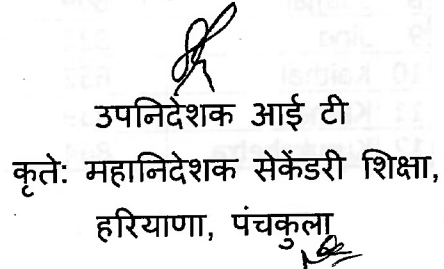 उपनिदेशक आई टी
कृते: महानिदेशक सेकेंडरी शिक्षा,
हरियाणा, पंचकुला